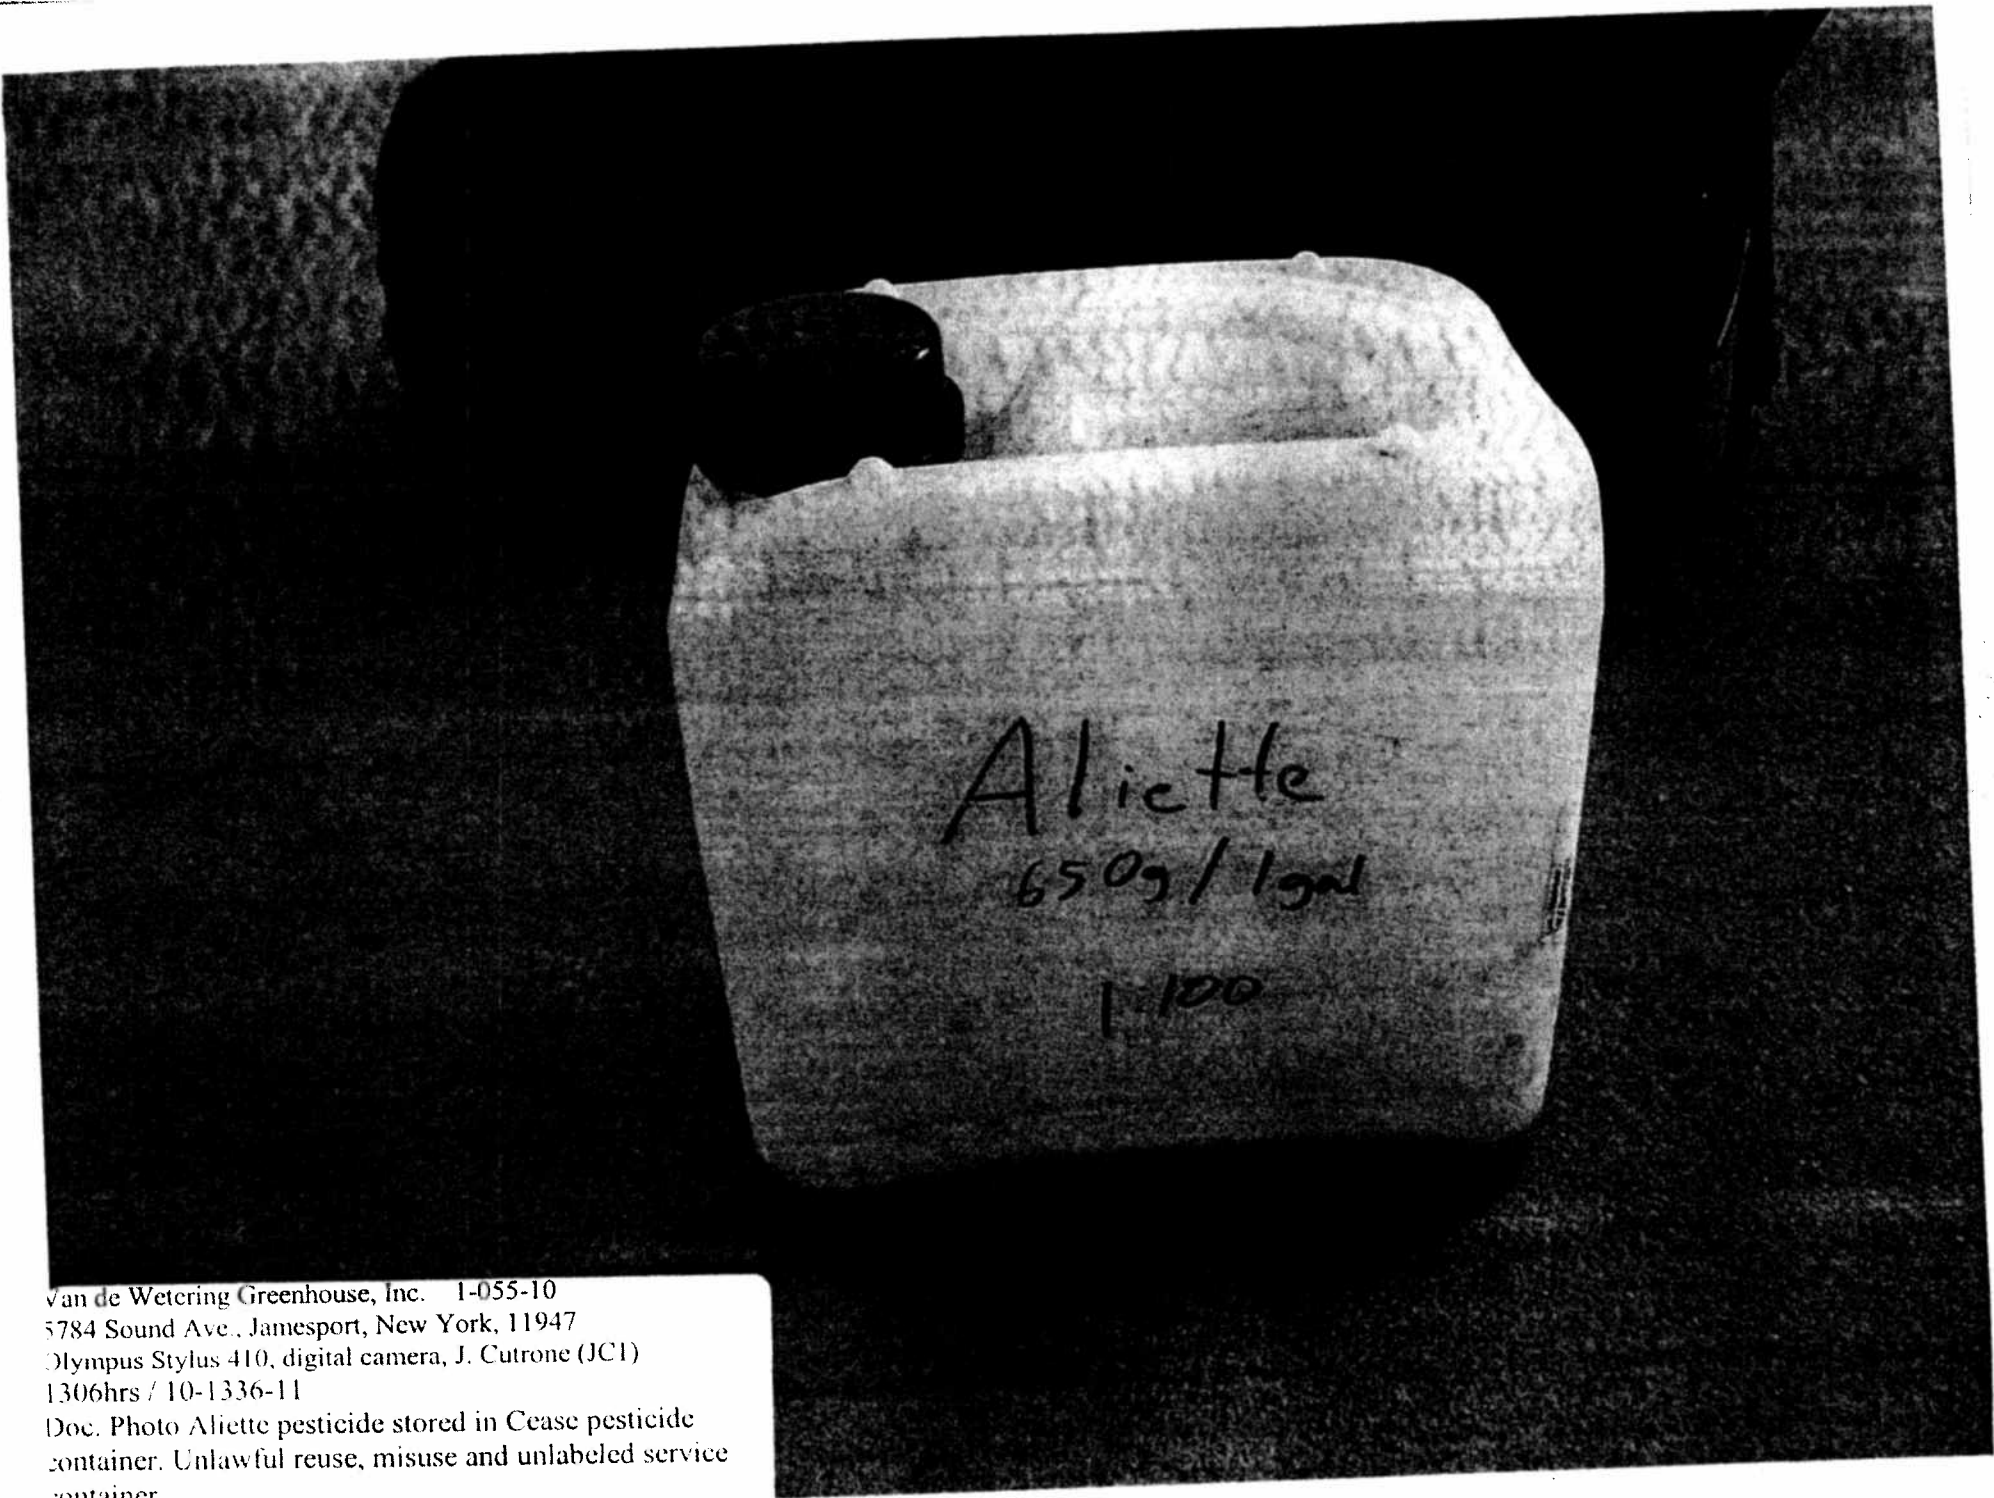 Aliette
650g / 1gal
1-100
Van de Wetering Greenhouse, Inc. 1-055-10
5784 Sound Ave., Jamesport, New York, 11947
Olympus Stylus 410, digital camera, J. Cutrone (JC1)
1306hrs / 10-1336-11
Doc. Photo Aliette pesticide stored in Cease pesticide
container. Unlawful reuse, misuse and unlabeled service
container